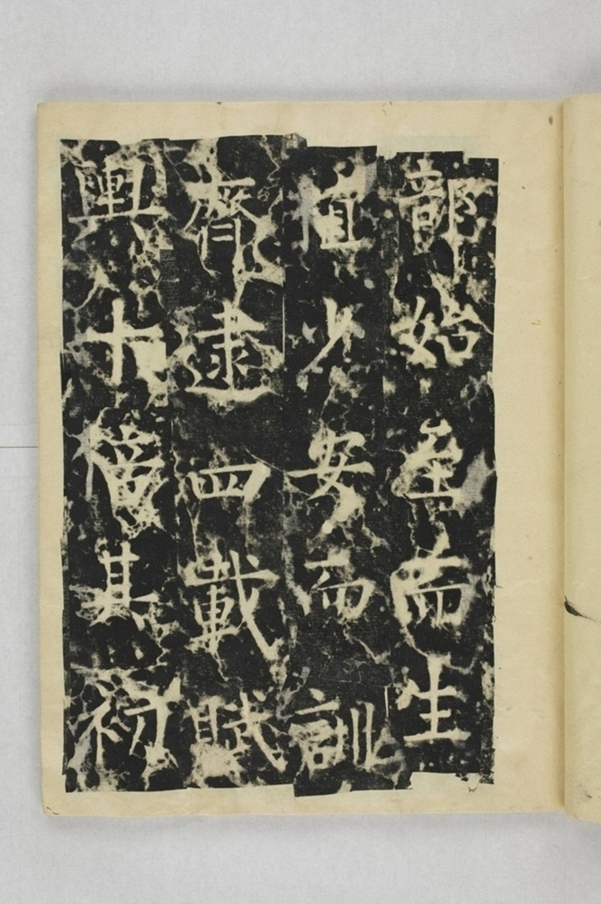 部始至而生
植少安而訓
齊逮四載賦
輿十倍其初